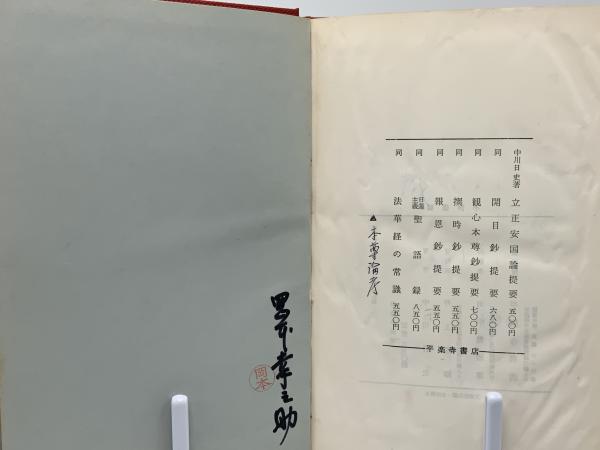 中川日史著 立正安国論提要 五〇〇円
同 開目鈔提要 六八〇円
同 観心本尊鈔提要 七〇〇円
同 撰時鈔提要 五五〇円
同 報恩鈔提要 五五〇円
同 日蓮主義 聖語録 八五〇円
同 法華経の常識 五五〇円
▲本尊論序
平楽寺書店
幸之助
岡本